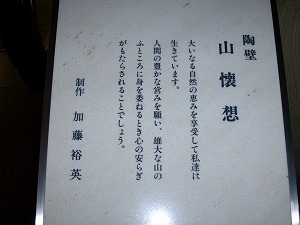 陶壁
山懐想
大いなる自然の恵みを享受して私達は
生きています。
人間の豊かな営みを願い、雄大な山の
ふところに身を委ねるとき心の安らぎ
がもたらされることでしょう。
制作 加藤裕英